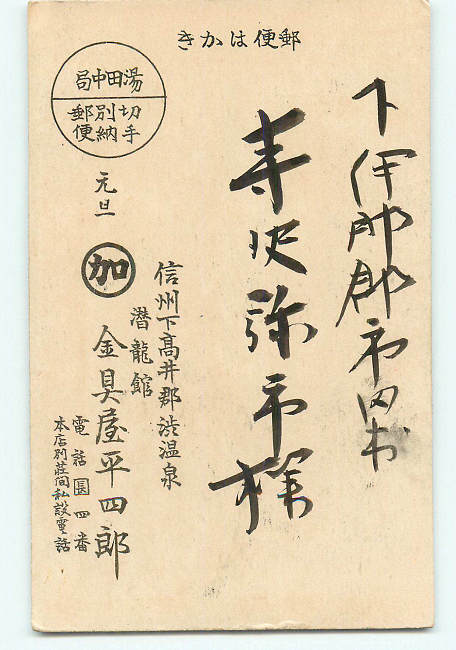 郵便はかき
下伊那郡市田村
寺沢弥市様
湯田中局
切手
別納
郵便
元旦
加
信州下高井郡渋温泉
潜龍館
金具屋平四郎
電話長四番
本店別荘間私設電話